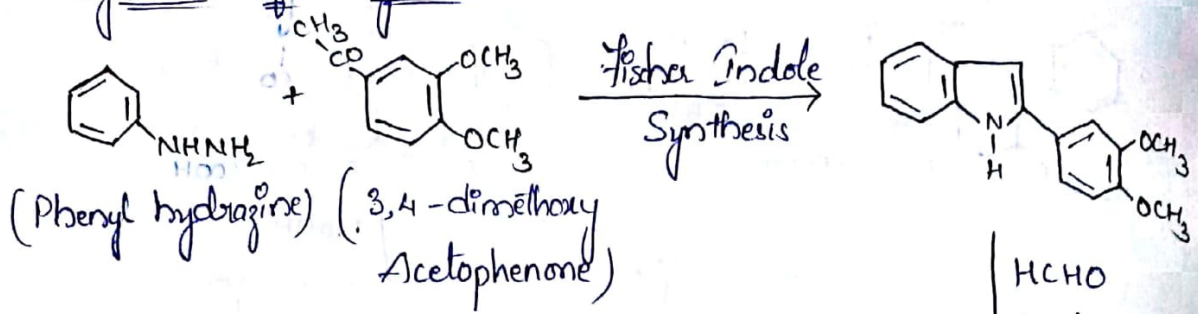 CH3
CO
OCH3
OCH3
+
NHNH2
Fischer Indole
Synthesis
N
H
OCH3
OCH3
(Phenyl hydrazine) (3,4-dimethoxy
Acetophenone)
HCHO